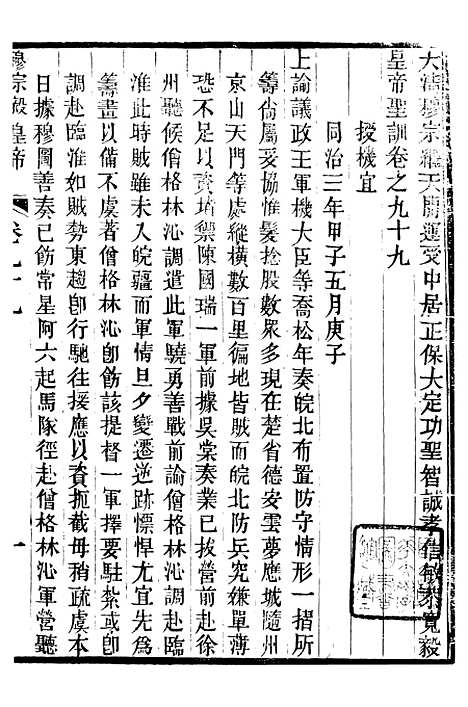 大清穆宗繼天開運受中居正保大定功聖智誠孝信敏恭寬毅
皇帝聖訓卷之九十九
授機宜
同治三年甲子五月庚子
上諭議政王軍機大臣等喬松年奏皖北布置防守情形一摺所
籌尙屬妥協惟髮捻股數眾多現在楚省德安雲夢應城隨州
京山天門等處縱橫數百里徧地皆賊而皖北防兵究嫌單薄
恐不足以資堵禦陳國瑞一軍前據吳棠奏業已拔營前赴徐
州聽候僧格林沁調遣此軍驍勇善戰前諭僧格林沁調赴臨
淮此時賊雖未入皖疆而軍情旦夕變遷逆跡慓悍尤宜先為
籌畫以備不虞著僧格林沁卽飭該提督一軍擇要駐紮或卽
調赴臨淮如賊勢東趨卽行馳往援應以資扼截毋稍疏虞本
日據穆圖善奏已飭常星阿六起馬隊徑赴僧格林沁軍營聽
穆宗毅皇帝
卷九十九
一